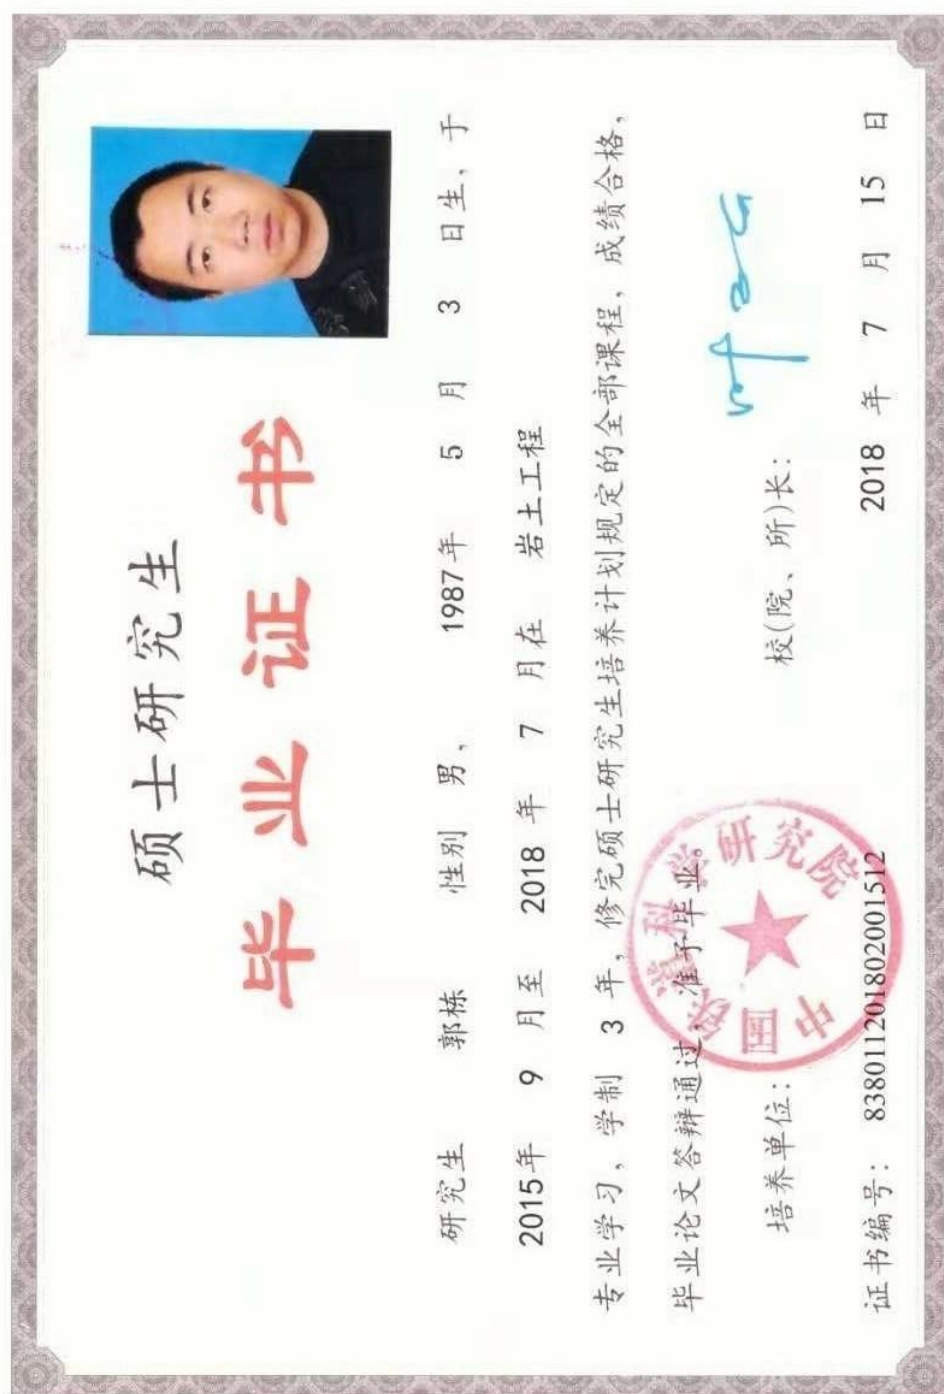 硕士研究生
毕业证书
研究生 郭栋 性别 男, 1987年 5 月 3 日生, 于
2015年 9 月至 2018 年 7 月在 岩土工程
专业学习, 学制 3 年, 修完硕士研究生培养计划规定的全部课程, 成绩合格,
毕业论文答辩通过, 准予毕业。
培养单位: 校(院、所)长:
中国铁道科学研究院
证书编号: 83801120180200151​2 2018 年 7 月 15 日